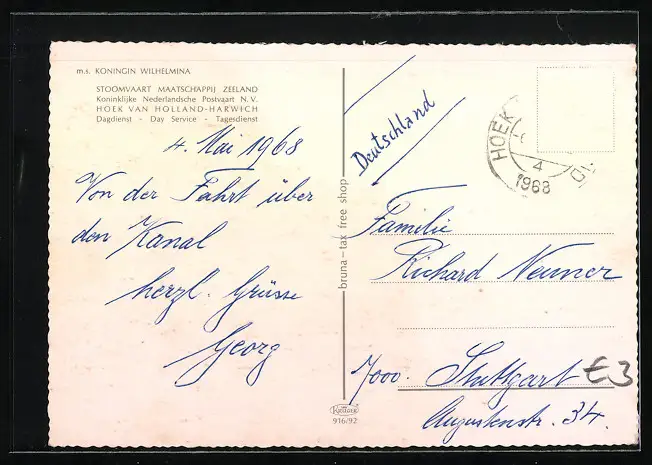 m.s. KONINGIN WILHELMINA
STOOMVAART MAATSCHAPPIJ ZEELAND
Koninklijke Nederlandsche Postvaart N.V.
HOEK VAN HOLLAND-HARWICH
Dagdienst - Day Service - Tagesdienst
4. Mai 1968
Von der Fahrt über
den Kanal
herzl. Grüsse
Georg
bruna - tax free shop
KRÜGER
916/92
Deutschland
HOEK
4
1968
Familie
Richard Neuner
7000. Stuttgart E3
Augustenstr. 34.